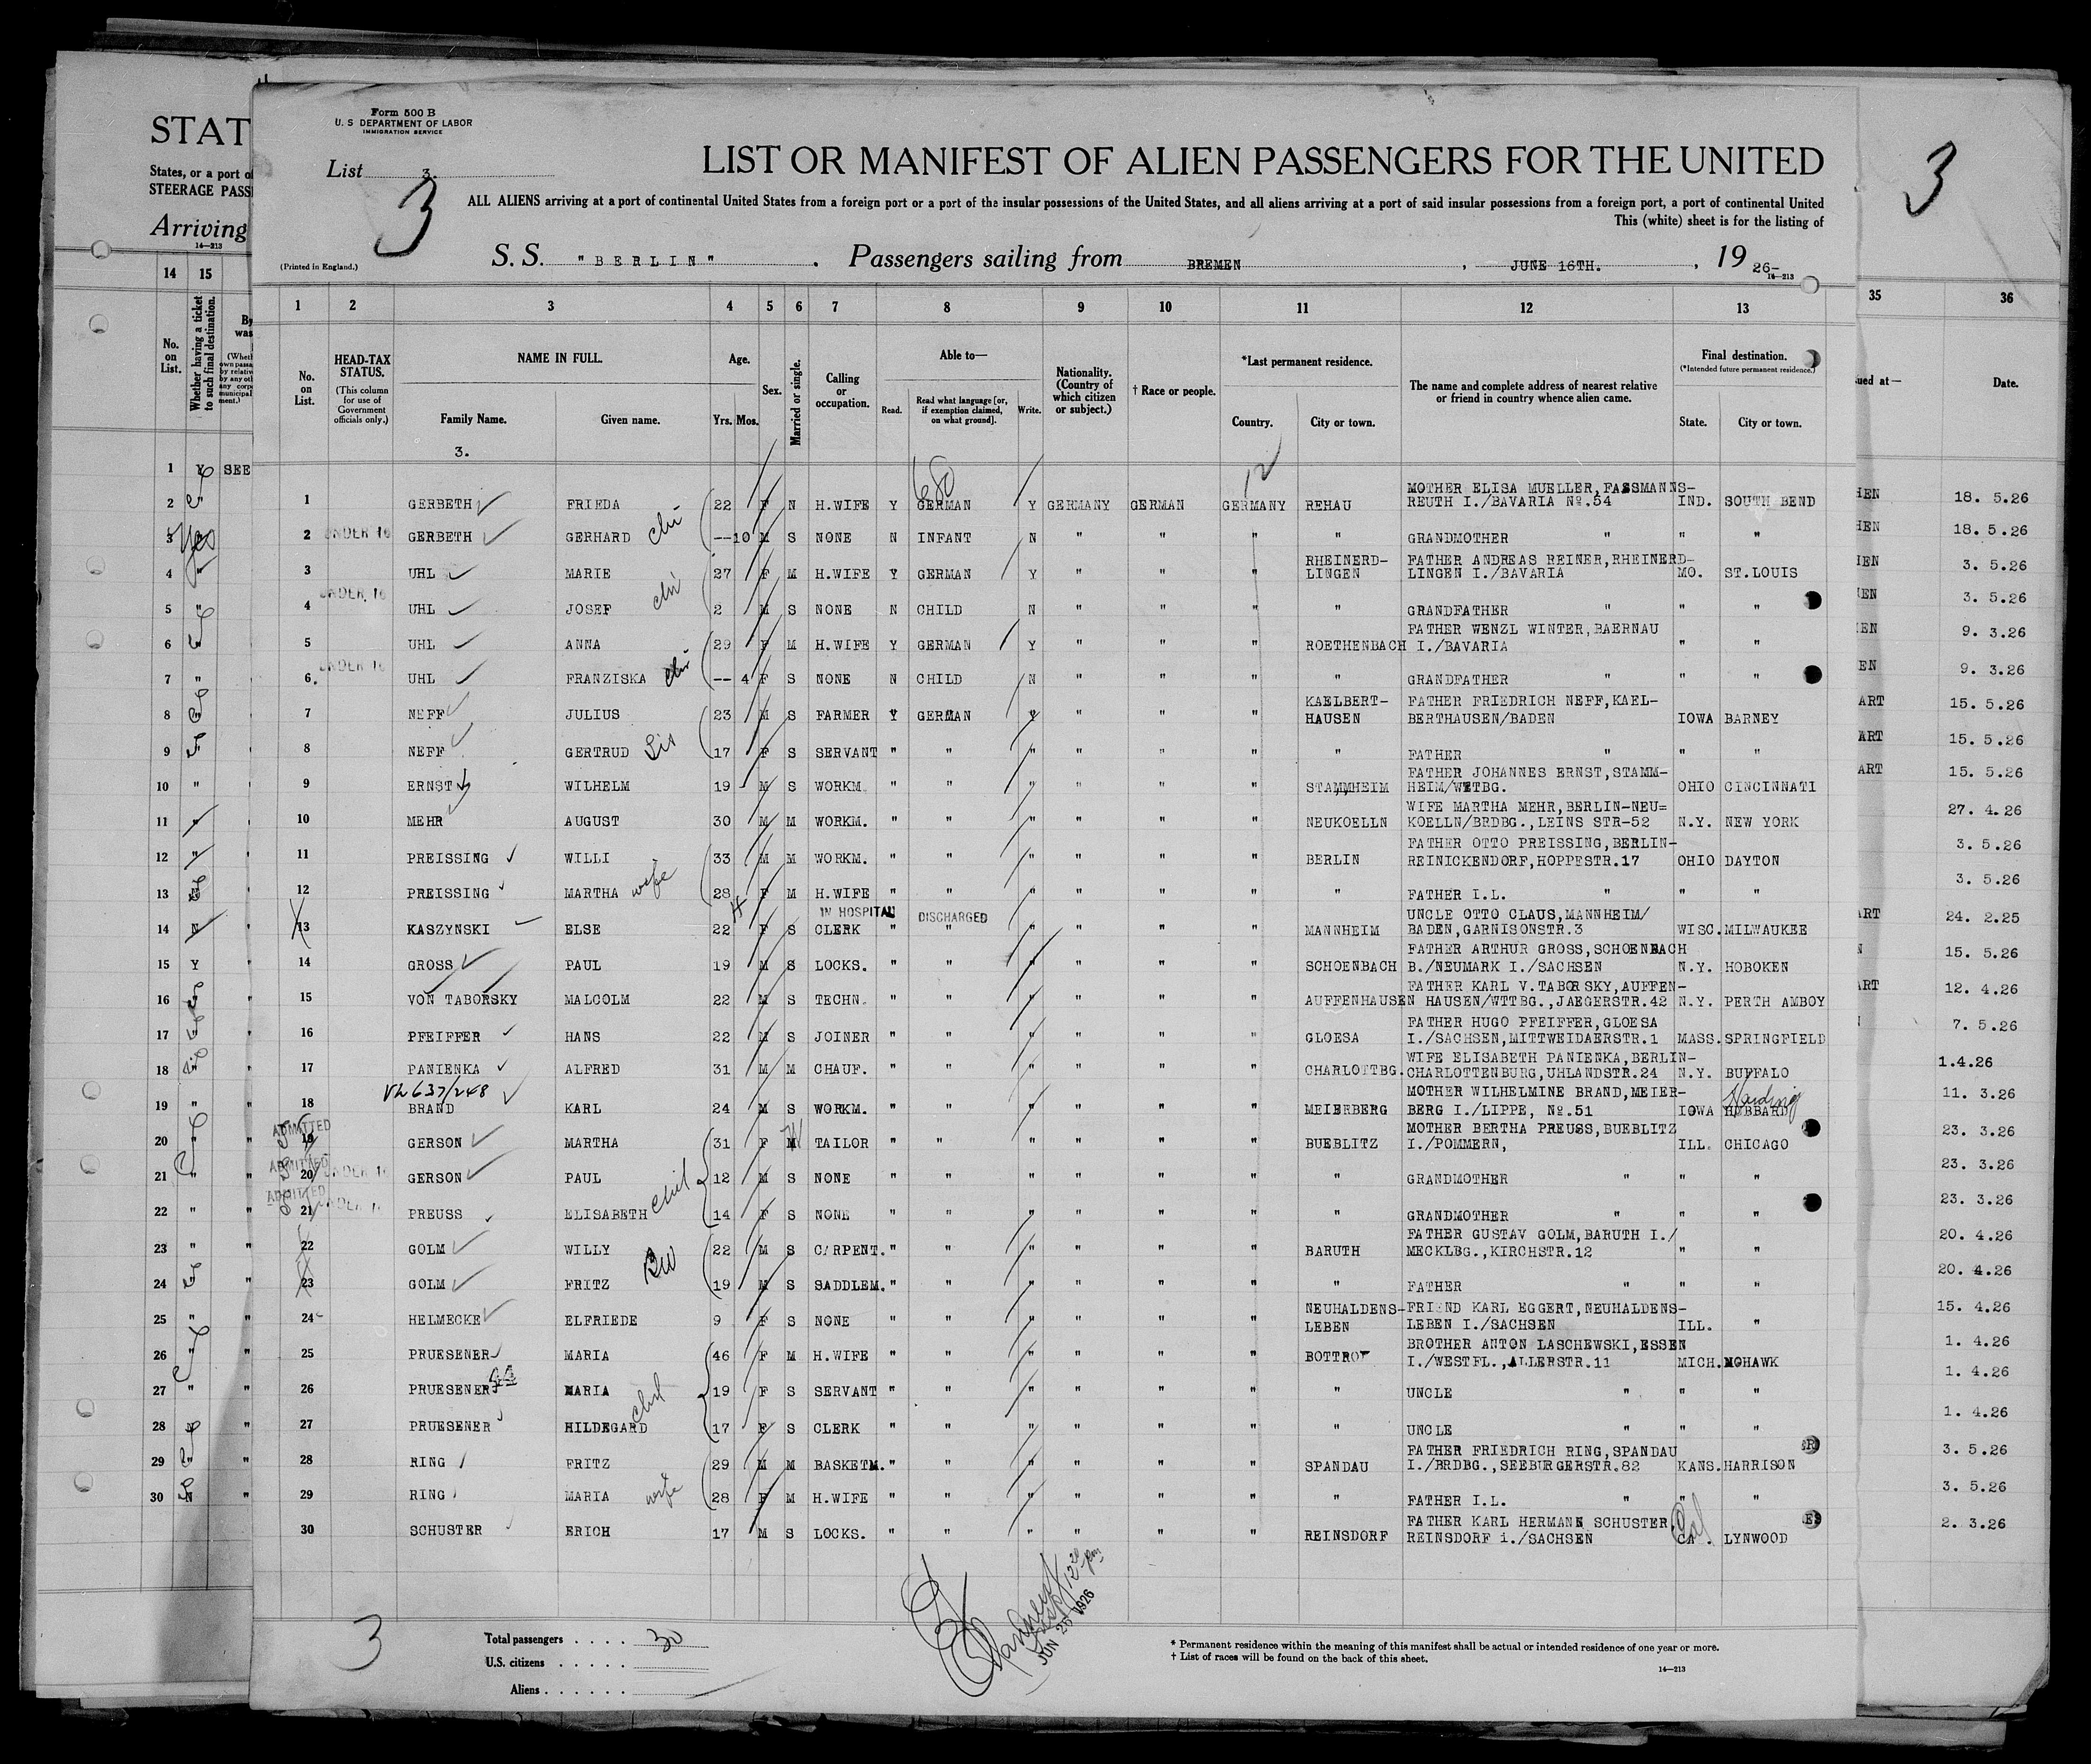 Form 500 B
U. S DEPARTMENT OF LABOR
IMMIGRATION SERVICE
STAT
List 3.
LIST OR MANIFEST OF ALIEN PASSENGERS FOR THE UNITED
3
3
States, or a port o
STEERAGE PASS
ALL ALIENS arriving at a port of continental United States from a foreign port or a port of the insular possessions of the United States, and all aliens arriving at a port of said insular possessions from a foreign port, a port of continental United
This (white) sheet is for the listing of
Arriving
14—213
(Printed in England.)
S. S. "BERLIN" . Passengers sailing from BREMEN , JUNE 16TH. , 19 26-
14—213
14 15
1 2 3 4 5 6 7 8 9 10 11 12 13
35 36
No. on List. Whether having a ticket to such final destination.
No. on List. HEAD-TAX STATUS. (This column for use of Government officials only.) NAME IN FULL. Family Name. Given name. Age. Yrs. Mos. Sex. Married or single. Calling or occupation. Able to— Read. Read what language [or, if exemption claimed, on what ground]. Write. Nationality. (Country of which citizen or subject.) † Race or people. *Last permanent residence. Country. City or town. The name and complete address of nearest relative or friend in country whence alien came. Final destination. (*Intended future permanent residence.) State. City or town.
ued at— Date.
3.
1 Y SEE
MOTHER ELISA MUELLER, FASSMANNS-
1 GERBETH FRIEDA 22 F N H.WIFE Y GERMAN Y GERMANY GERMAN GERMANY REHAU REUTH I./BAVARIA No.54 IND. SOUTH BEND 18. 5.26
2 UNDER 16 GERBETH GERHARD --10 M S NONE N INFANT N " " " " GRANDMOTHER " " " 18. 5.26
RHEINERD- FATHER ANDREAS REINER, RHEINERD-
3 UHL MARIE 27 F M H.WIFE Y GERMAN Y " " " LINGEN LINGEN I./BAVARIA MO. ST.LOUIS 3. 5.26
4 UNDER 16 UHL JOSEF 2 M S NONE N CHILD N " " " " GRANDFATHER " " " 3. 5.26
FATHER WENZL WINTER, BAERNAU
5 UHL ANNA 29 F M H.WIFE Y GERMAN Y " " " ROETHENBACH I./BAVARIA " " 9. 3.26
6. UNDER 16 UHL FRANZISKA -- 4 F S NONE N CHILD N " " " " GRANDFATHER " " " 9. 3.26
KAELBERT- FATHER FRIEDRICH NEFF, KAEL-
7 NEFF JULIUS 23 M S FARMER Y GERMAN Y " " " HAUSEN BERTHAUSEN/BADEN IOWA BARNEY 15. 5.26
8 NEFF GERTRUD Sis 17 F S SERVANT " " " " " " " FATHER " " " 15. 5.26
FATHER JOHANNES ERNST, STAMM-
9 ERNST WILHELM 19 M S WORKM. " " " " " " STAMMHEIM HEIM/WTTBG. OHIO CINCINNATI 15. 5.26
WIFE MARTHA MEHR, BERLIN-NEU=
10 MEHR AUGUST 30 M M WORKM. " " " " " " NEUKOELLN KOELLN/BRDBG., LEINS STR-52 N.Y. NEW YORK 27. 4.26
FATHER OTTO PREISSING, BERLIN-
11 PREISSING WILLI 33 M M WORKM. " " " " " " BERLIN REINICKENDORF, HOPPESTR.17 OHIO DAYTON 3. 5.26
12 PREISSING MARTHA wife 28 F M H.WIFE " " " " " " " FATHER I.L. " " " 3. 5.26
IN HOSPITAL DISCHARGED UNCLE OTTO CLAUS, MANNHEIM/
13 KASZYNSKI ELSE 22 F S CLERK " " " " " " MANNHEIM BADEN, GARNISONSTR.3 WISC. MILWAUKEE 24. 2.25
FATHER ARTHUR GROSS, SCHOENBACH
14 GROSS PAUL 19 M S LOCKS. " " " " " " SCHOENBACH B./NEUMARK I./SACHSEN N.Y. HOBOKEN 15. 5.26
FATHER KARL V.TABORSKY, AUFFEN-
15 VON TABORSKY MALCOLM 22 M S TECHN. " " " " " " AUFFENHAUSEN HAUSEN/WTTBG., JAEGERSTR.42 N.Y. PERTH AMBOY 12. 4.26
FATHER HUGO PFEIFFER, GLOESA
16 PFEIFFER HANS 22 M S JOINER " " " " " " GLOESA I./SACHSEN, MITTWEIDAERSTR.1 MASS. SPRINGFIELD 7. 5.26
WIFE ELISABETH PANIENKA, BERLIN-
17 PANIENKA ALFRED 31 M M CHAUF. " " " " " " CHARLOTTBG. CHARLOTTENBURG, UHLANDSTR.24 N.Y. BUFFALO 1.4.26
MOTHER WILHELMINE BRAND, MEIER- Harding
18 BRAND KARL 24 M S WORKM. " " " " " " MEIERBERG BERG I./LIPPE, No.51 IOWA HUBBARD 11. 3.26
ADMITTED MOTHER BERTHA PREUSS, BUEBLITZ
19 GERSON MARTHA 31 F M TAILOR " " " " " " BUEBLITZ I./POMMERN, ILL. CHICAGO 23. 3.26
ADMITTED
20 UNDER 16 GERSON PAUL 12 M S NONE " " " " " " " GRANDMOTHER " " " 23. 3.26
ADMITTED
21 PREUSS ELISABETH 14 F S NONE " " " " " " " GRANDMOTHER " " " 23. 3.26
FATHER GUSTAV GOLM, BARUTH I./
22 GOLM WILLY 22 M S CARPENT. " " " " " " BARUTH MECKLBG., KIRCHSTR.12 " " 20. 4.26
23 GOLM FRITZ 19 M S SADDLEM. " " " " " " " FATHER " " " 20. 4.26
NEUHALDENS- FRIEND KARL EGGERT, NEUHALDENS-
24 HELMECKE ELFRIEDE 9 F S NONE " " " " " " LEBEN LEBEN I./SACHSEN ILL. " 15. 4.26
BROTHER ANTON LASCHEWSKI, ESSEN
25 PRUESENER MARIA 46 F M H.WIFE " " " " " " BOTTROP I./WESTFL., ALLERSTR.11 MICH. MOHAWK 1. 4.26
26 PRUESENER MARIA 19 F S SERVANT " " " " " " " UNCLE " " " 1. 4.26
27 PRUESENER HILDEGARD 17 F S CLERK " " " " " " " UNCLE " " " 1. 4.26
FATHER FRIEDRICH RING, SPANDAU
28 RING FRITZ 29 M M BASKETM. " " " " " " SPANDAU I./BRDBG., SEEBURGERSTR.82 KANS. HARRISON 3. 5.26
29 RING MARIA wife 28 F M H.WIFE " " " " " " " FATHER I.L. " " " 3. 5.26
FATHER KARL HERMANN SCHUSTER, Cal
30 SCHUSTER ERICH 17 M S LOCKS. " " " " " " REINSDORF REINSDORF i./SACHSEN CA . LYNWOOD 2. 3.26
JUN 26 1926
3
Total passengers . . . . 30
U.S. citizens . . . . .
Aliens . . . . . .
* Permanent residence within the meaning of this manifest shall be actual or intended residence of one year or more.
† List of races will be found on the back of this sheet.
14—213